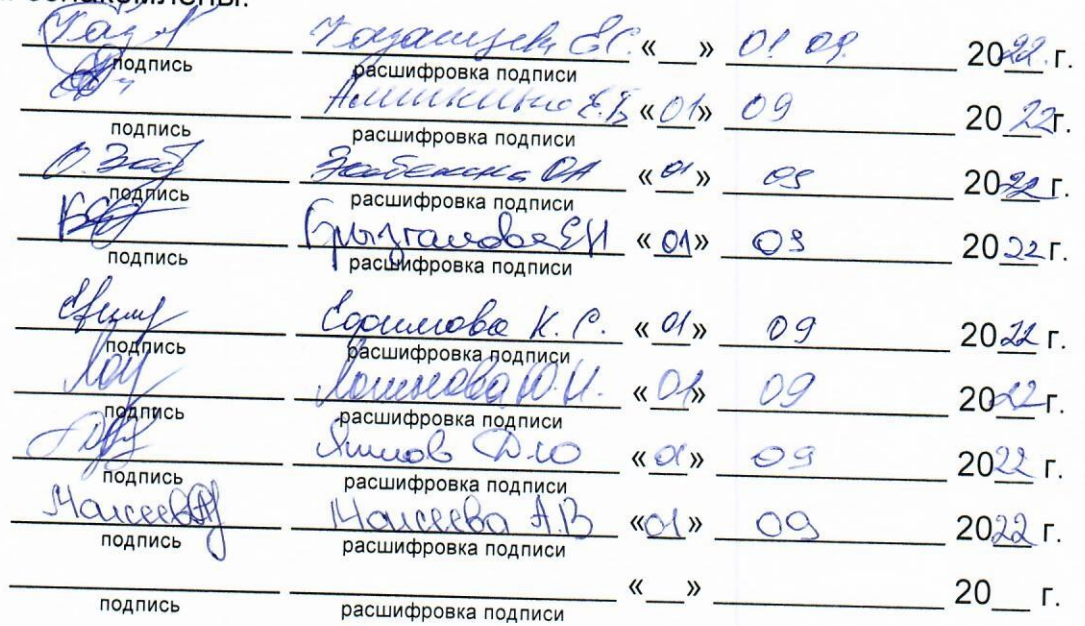 ознакомлены.
Е.С. «__» 01 09. 2022. г.
подпись расшифровка подписи
Е.В «01» 09 2022г.
подпись расшифровка подписи
О. Заб ОА «01» 09 2022 г.
подпись расшифровка подписи
Брызгалова ЕН «01» 09 2022 г.
подпись расшифровка подписи
Ефим Ефимова К. С. «01» 09 2022 г.
подпись расшифровка подписи
Ю.Н. «01» 09 2022г.
подпись расшифровка подписи
Д.Ю «01» 09 2022 г.
подпись расшифровка подписи
Моисеева А.В «01» 09 2022 г.
подпись расшифровка подписи
«__» 20__ г.
подпись расшифровка подписи